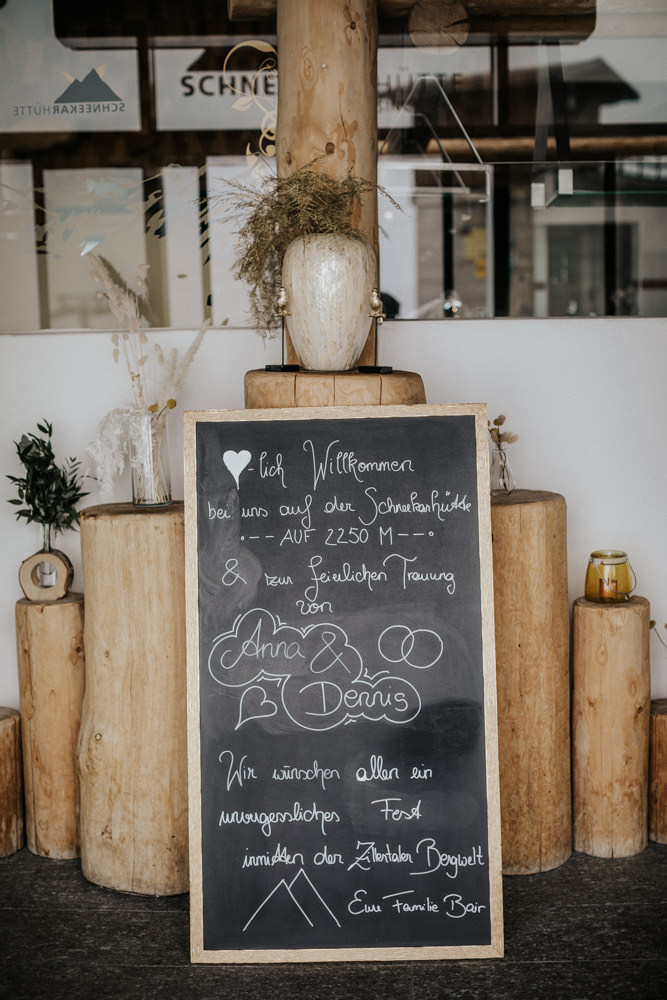 SCHNEEKARHÜTTE
SCHNE HÜTTE
-lich Willkommen
bei uns auf der Schneekarhütte
AUF 2250 M
& zur feierlichen Trauung
von
Anna &
Dennis
Wir wünschen allen ein
unvergessliches Fest
inmitten der Zillertaler Bergwelt
Eure Familie Bair